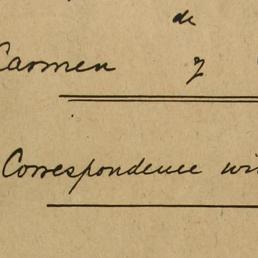 de
Carmen y
Correspondence wi